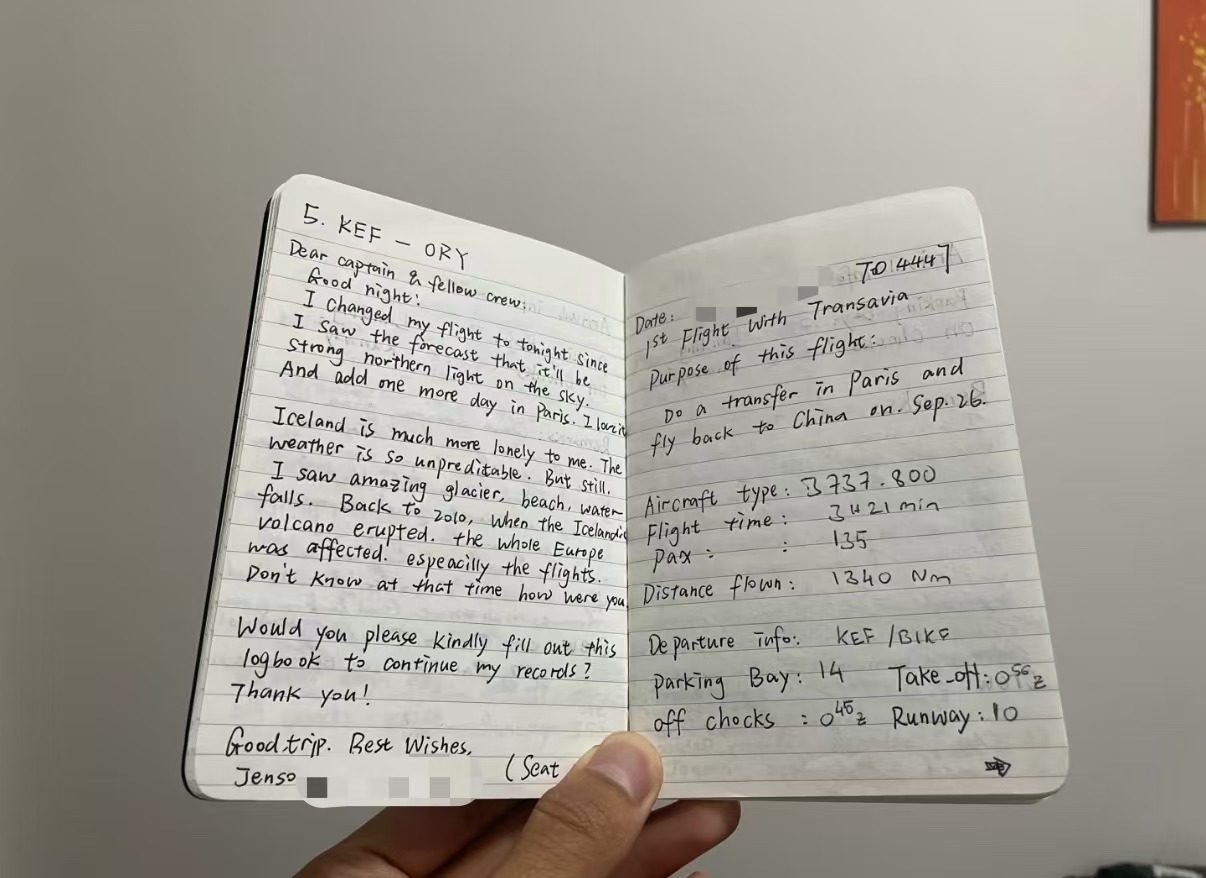 5. KEF - ORY
Dear captain & fellow crew:
Good night!
I changed my flight to tonight since
I saw the forecast that it'll be
strong northern light on the sky.
And add one more day in Paris. I love it
Iceland is much more lonely to me. The
weather is so unpreditable. But still.
I saw amazing glacier, beach, water-
falls. Back to 2010, when the Icelandic
volcano erupted. the whole Europe
was affected. espeacilly the flights.
Don't know at that time how were you
Would you please kindly fill out this
logbook to continue my records?
Thank you!
Good trip. Best Wishes,
Jenso
(Seat
TO 4447
Date:
1st Flight with Transavia
Purpose of this flight:
Do a transfer in Paris and
fly back to China on. Sep. 26.
Aircraft type: B737.800
Flight time: 3H21min
Pax: : 135
Distance flown: 1340 Nm
Departure info: KEF /BIKF
Parking Bay: 14 Take-off: 0⁵⁶z
off chocks : 0⁴⁵z Runway: 10